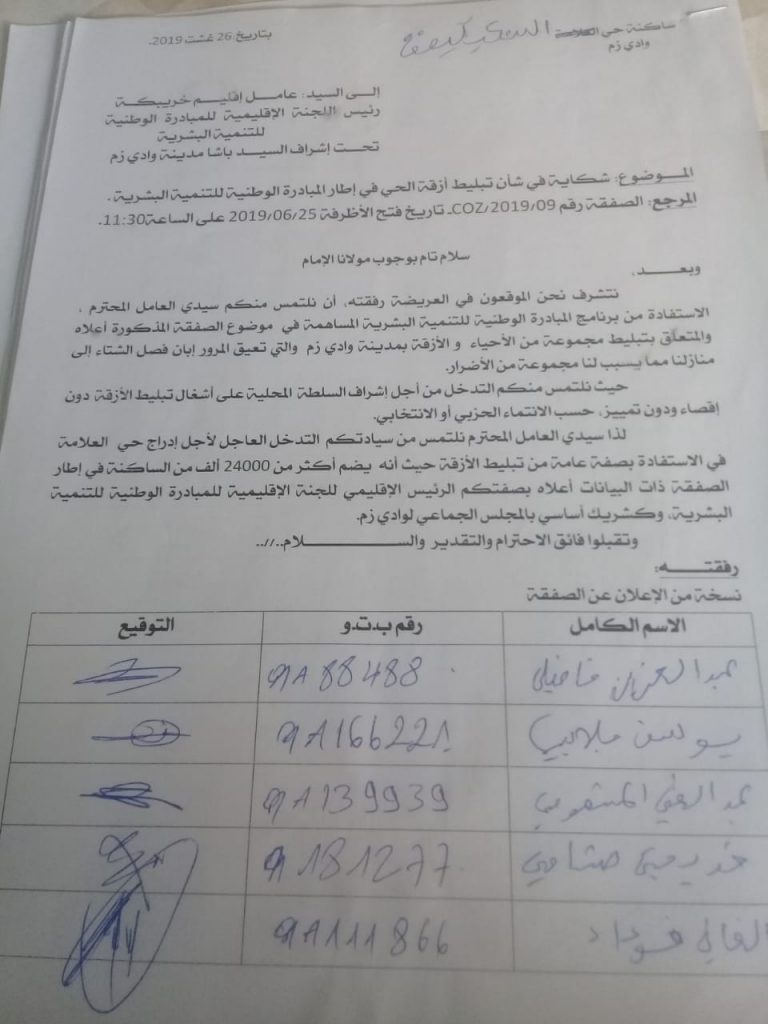 ساكنة حي العلامة
وادي زم
بتاريخ: 26 غشت 2019.
إلى السيد: عامل إقليم خريبكة
رئيس اللجنة الإقليمية للمبادرة الوطنية
للتنمية البشرية
تحت إشراف السيد باشا مدينة وادي زم
الموضوع: شكاية في شأن تبليط أزقة الحي في إطار المبادرة الوطنية للتنمية البشرية.
المرجع: الصفقة رقم COZ/2019/09ـ تاريخ فتح الأظرفة 2019/06/25 على الساعة 11:30.
سلام تام بوجوب مولانا الإمام
وبعـــد،
نتشرف نحن الموقعون في العريضة رفقته، أن نلتمس منكم سيدي العامل المحترم ،
الاستفادة من برنامج المبادرة الوطنية للتنمية البشرية المساهمة في موضوع الصفقة المذكورة أعلاه
والمتعلق بتبليط مجموعة من الأحياء و الأزقة بمدينة وادي زم والتي تعيق المرور إبان فصل الشتاء إلى
منازلنا مما يسبب لنا مجموعة من الأضرار.
حيث نلتمس منكم التدخل من أجل إشراف السلطة المحلية على أشغال تبليط الأزقة دون
إقصاء ودون تمييز، حسب الانتماء الحزبي أو الانتخابي.
لذا سيدي العامل المحترم نلتمس من سيادتكم التدخل العاجل لأجل إدراج حي العلامة
في الاستفادة بصفة عامة من تبليط الأزقة حيث أنه يضم أكثر من 24000 ألف من الساكنة في إطار
الصفقة ذات البيانات أعلاه بصفتكم الرئيس الإقليمي للجنة الإقليمية للمبادرة الوطنية للتنمية
البشرية، وكشريك أساسي بالمجلس الجماعي لوادي زم.
وتقبلوا فائق الاحترام والتقدير والســـــــلام..//..
رفقتــه:
نسخة من الإعلان عن الصفقة
الاسم الكامل رقم ب.ت.و التوقيع
عبد العزيز فاضيلي QA88488
يوسف QA166221
عبد الغني QA139939
Q181277
فؤاد QA111866